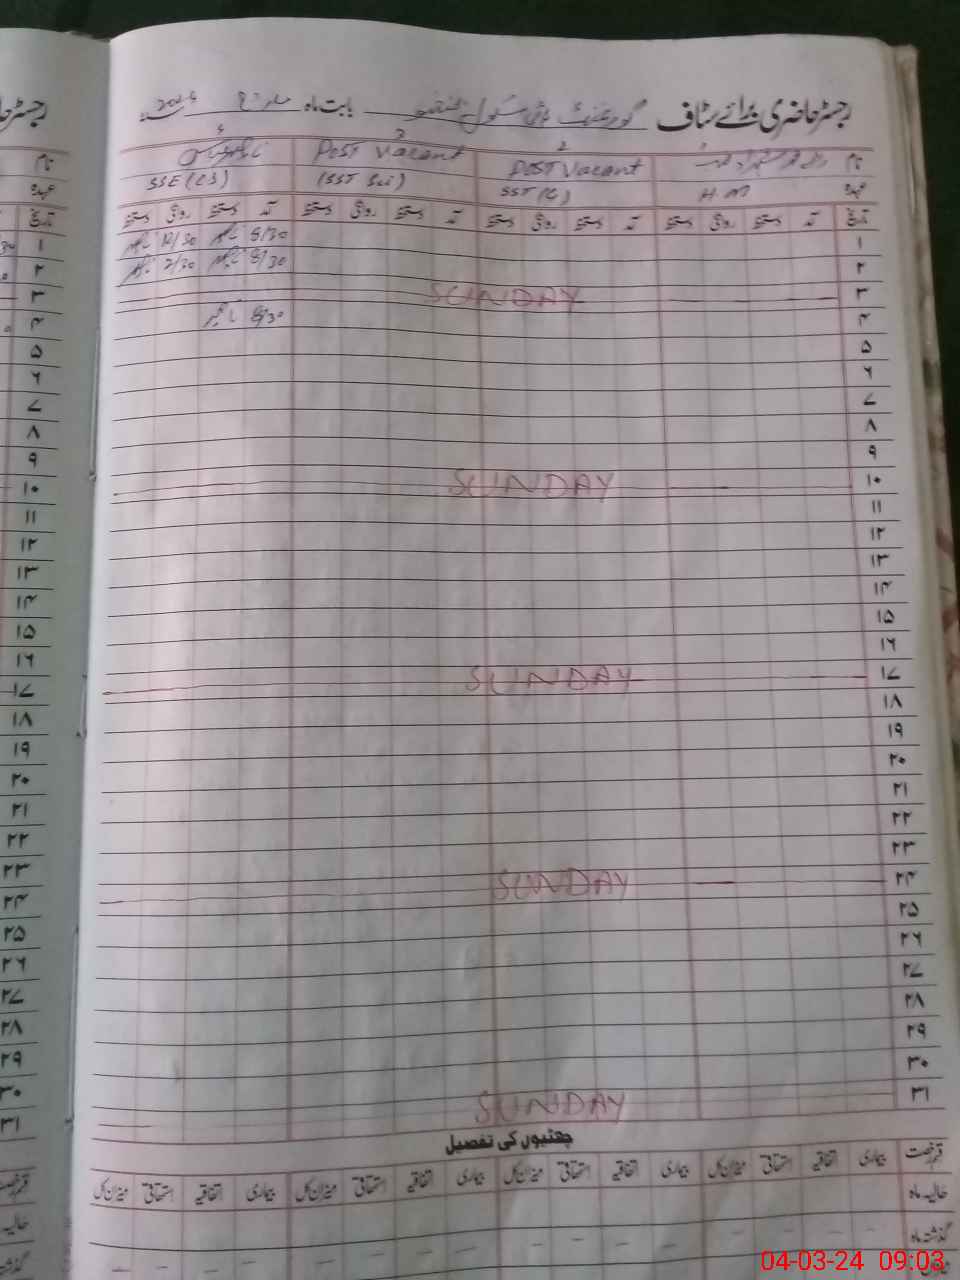 رجسٹر حاضری برائے سٹاف گورنمنٹ ہائی سکول بابت ماہ مارچ 2024
1 2 3 4
نام Post Vacant Post Vacant
عہدہ H.M SST (G) (SST Sci) SSE (CS)
تاریخ آمد دستخط روانگی دستخط آمد دستخط روانگی دستخط آمد دستخط روانگی دستخط آمد دستخط روانگی دستخط
۱ 8/30 12/30
۲ 8/30 2/30
۳ SUNDAY
۴ 8/30
۵
۶
۷
۸
۹
۱۰ SUNDAY
۱۱
۱۲
۱۳
۱۴
۱۵
۱۶
۱۷ SUNDAY
۱۸
۱۹
۲۰
۲۱
۲۲
۲۳
۲۴ SUNDAY
۲۵
۲۶
۲۷
۲۸
۲۹
۳۰
۳۱ SUNDAY
چھٹیوں کی تفصیل
قسم رخصت بیماری اتفاقیہ استحقاقی میزان کل بیماری اتفاقیہ استحقاقی میزان کل بیماری اتفاقیہ استحقاقی میزان کل بیماری اتفاقیہ استحقاقی میزان کل
حالیہ ماہ
گذشتہ ماہ
04-03-24 09:03